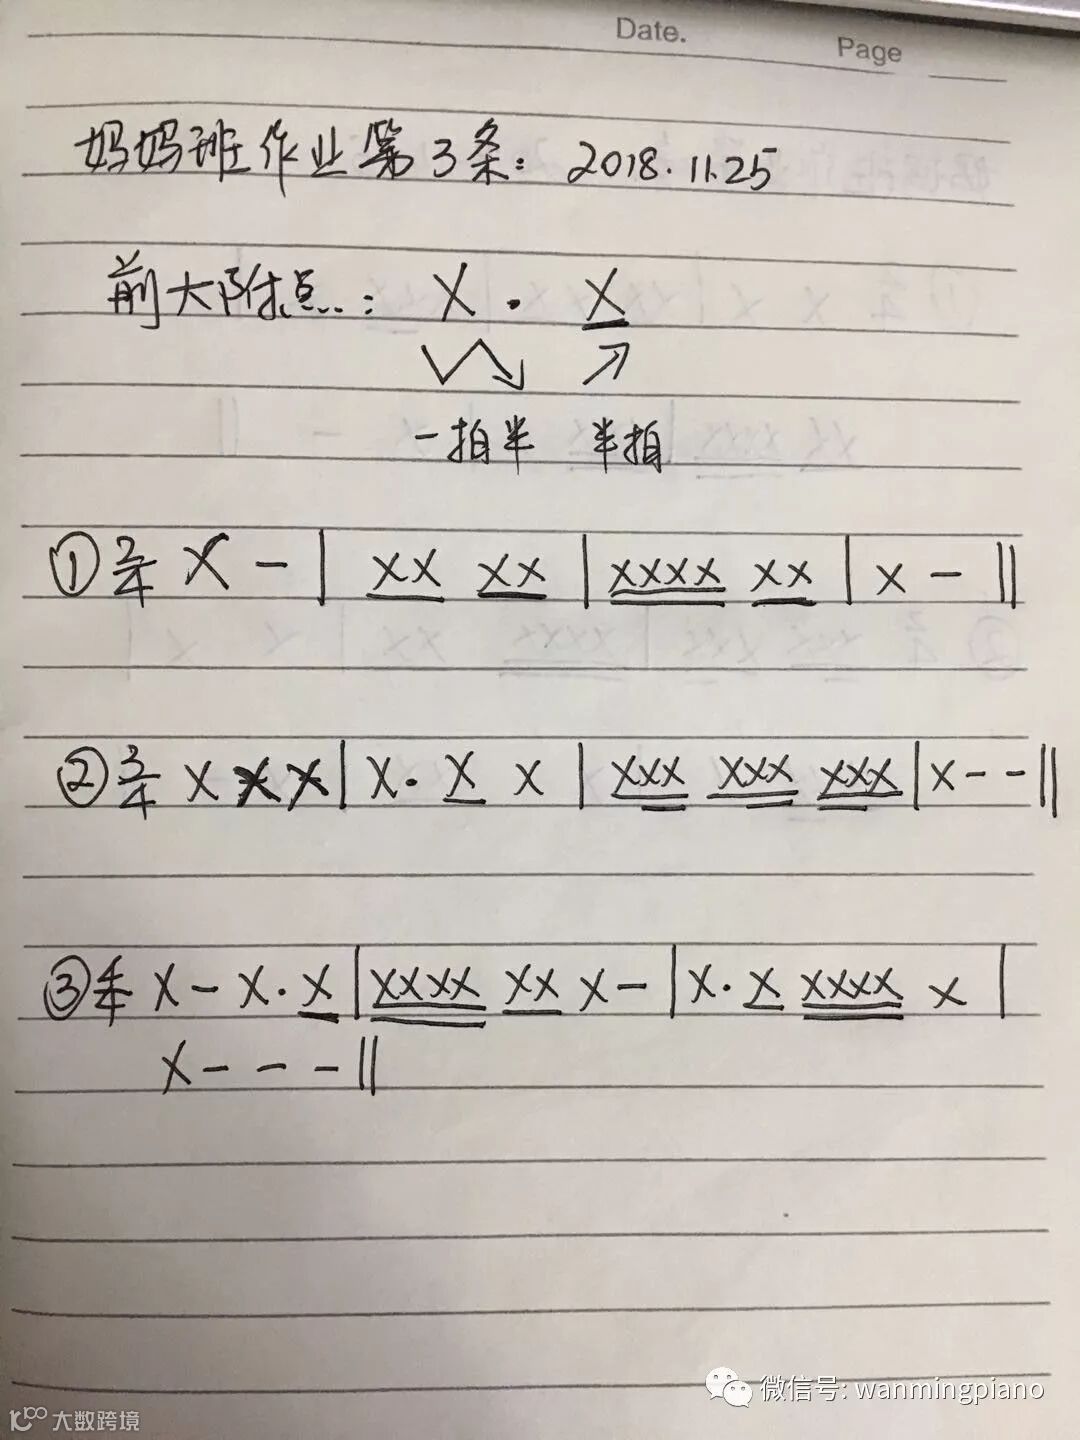 Date.
Page
妈妈班作业第3条: 2018.11.25
前大附点: X · X
一拍半 半拍
① 2/4 X - | XX XX | XXXX XX | X - ||
② 3/4 X X X | X · X X | XXX XXX XXX | X - - ||
③ 4/4 X - X · X | XXXX XX X - | X · X XXXX X |
X - - - ||
微信号: wanmingpiano
大数跨境